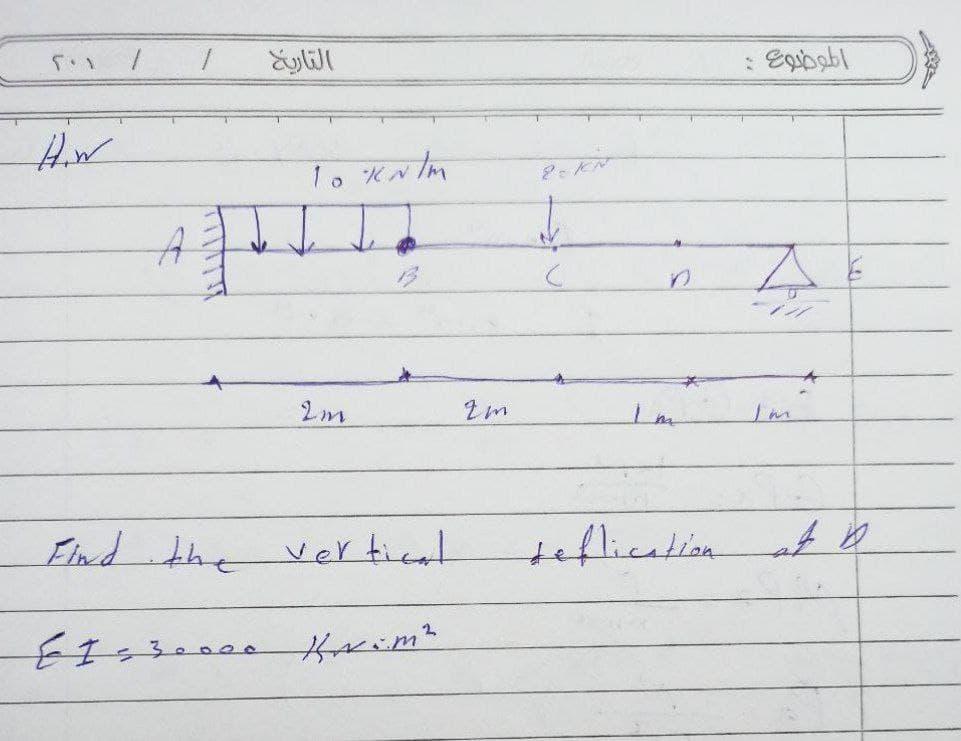 الموضوع :
التاريخ / / ٢٠١
H.W
10 KN/m
20 KN
A
B
C
D
E
2m
2m
1m
1m
Find the vertical deflication at D
EI = 30000 KN.m²